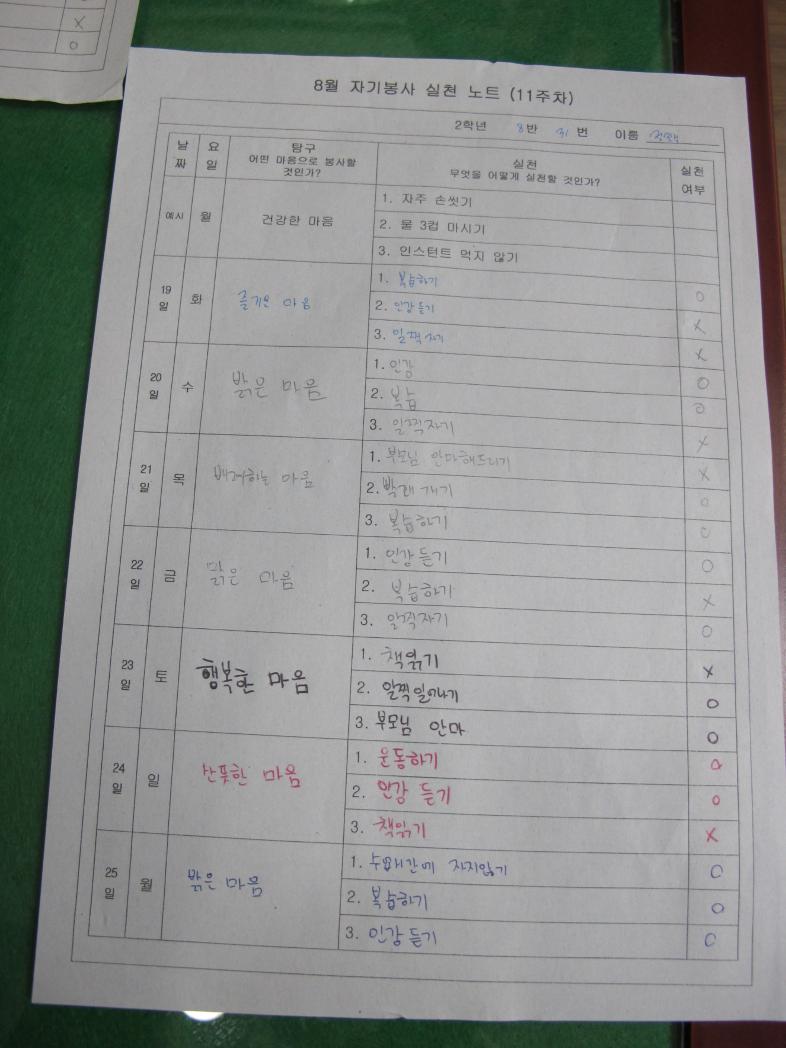 X
O
8월 자기봉사 실천 노트 (11주차)
2학년 8반 31번 이름
날짜 요일 탐구 어떤 마음으로 봉사할 것인가? 실천 무엇을 어떻게 실천할 것인가? 실천여부
예시 월 건강한 마음
1. 자주 손씻기
2. 물 3컵 마시기
3. 인스턴트 먹지 않기
19일 화 즐거운 마음
1. 복습하기 O
2. 인강듣기 X
3. 일찍자기 X
20일 수 밝은 마음
1. 인강 O
2. 복습 O
3. 일찍자기 X
21일 목 배려하는 마음
1. 부모님 안마해드리기 X
2. 빨래 개기 O
3. 복습하기 O
22일 금 맑은 마음
1. 인강듣기 O
2. 복습하기 X
3. 일찍자기 O
23일 토 행복한 마음
1. 책읽기 X
2. 일찍일어나기 O
3. 부모님 안마 O
24일 일 산뜻한 마음
1. 운동하기 O
2. 인강 듣기 O
3. 책읽기 X
25일 월 밝은 마음
1. 수업시간에 자지않기 O
2. 복습하기 O
3. 인강듣기 O